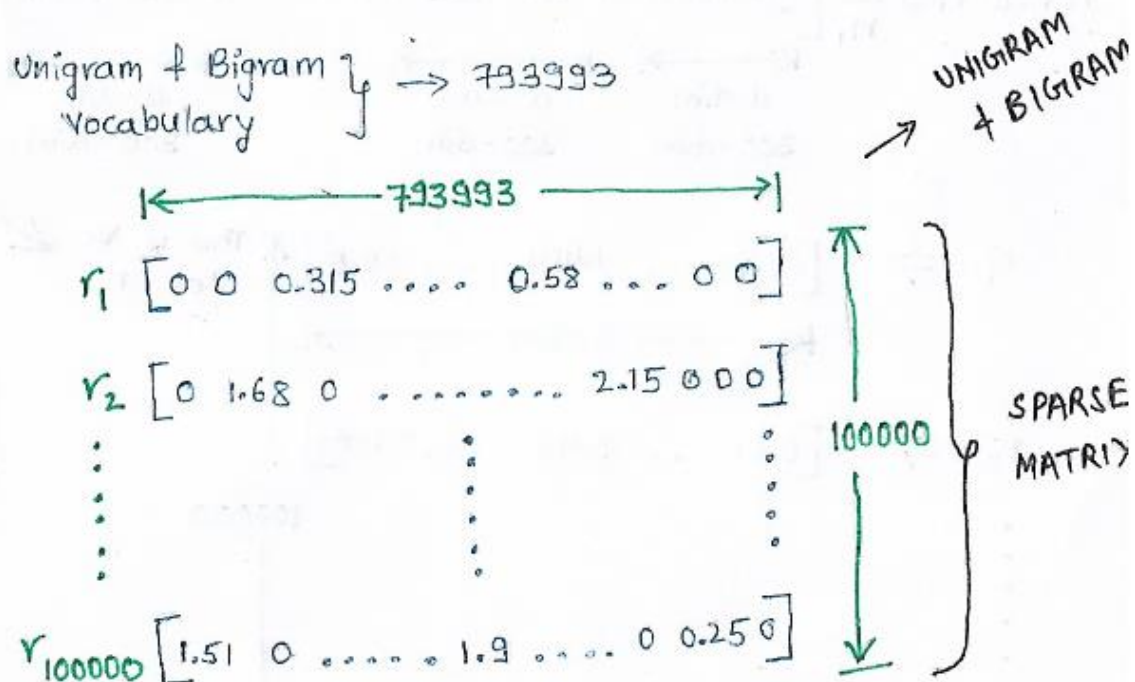 Unigram & Bigram } → 793993
vocabulary
UNIGRAM
& BIGRAM
793993
r1 [0 0 0.315 .... 0.58 ... 0 0]
r2 [0 1.68 0 ........ 2.15 0 0 0]
100000
SPARSE
MATRIX
r100000 [1.51 0 ..... 1.9 .... 0 0.25 0]